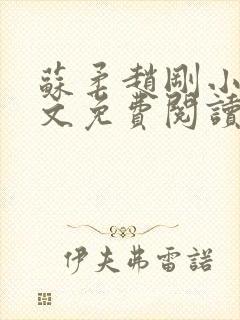 蘇柔趙剛小
文免費閱讀
伊夫弗雷諾